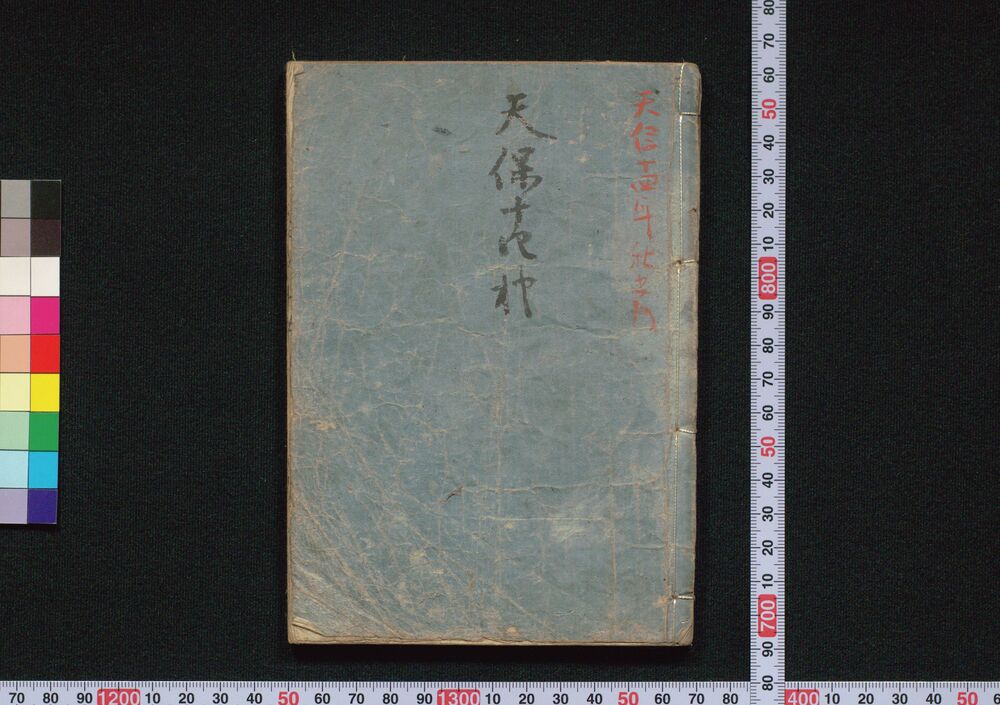 天保十四年秋
天保十
70
80
90
1200
10
20
30
40
50
60
70
80
90
1300
10
20
30
40
50
60
70
80
400
10
20
30
40
50
6
80
70
60
50
40
30
20
10
800
90
80
70
60
50
40
30
20
10
700
90
80